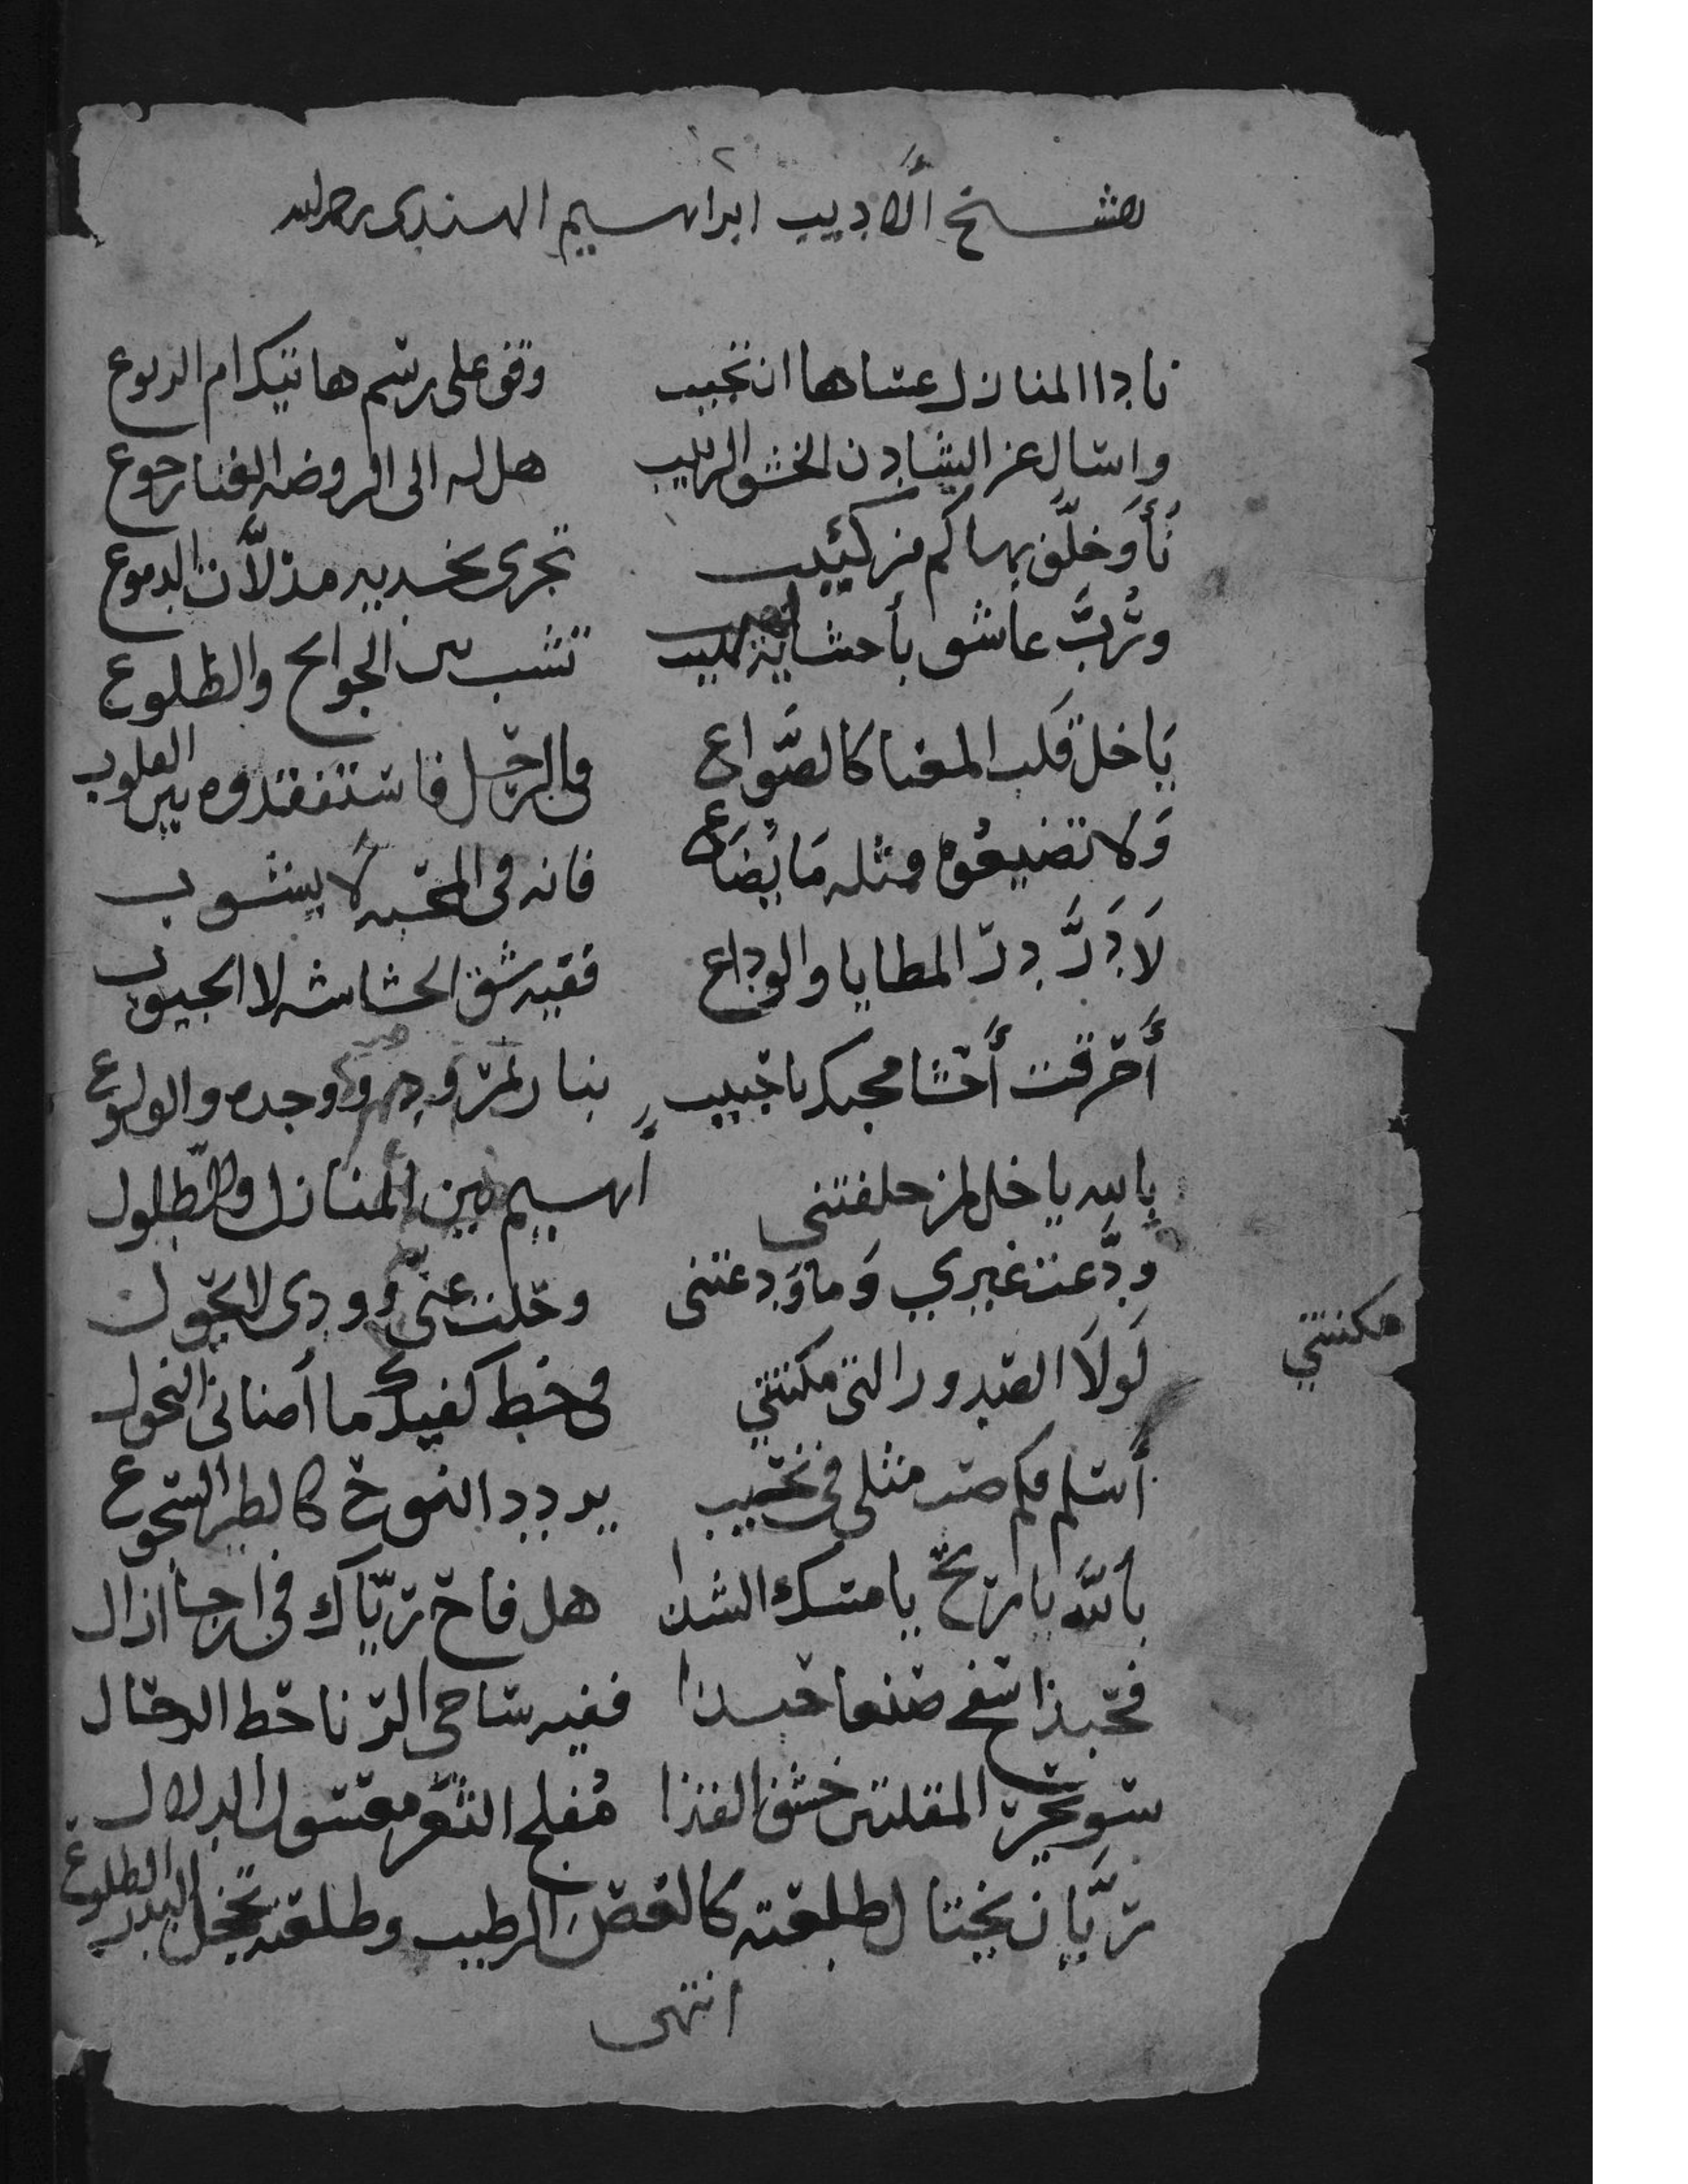 للشيخ الأديب ابراهيم الهندي رحمه الله
نادا المنازل عساها ان تجيب وقف على رسم هاتيك ام الربوع
واسال عن الشادن الخشف الربيب هل له الى الروضه الغنا رجوع
نأَا وَخلَّف بها كم من كئيب تجرى بخديه مذلَّان الدموع
ورُبَّ عاشق بأحشايه لهيب تشب بين الجوانح والظلوع
يَا خل قلب المعنا كالصُّواع فى الرحل فاستفقدوه بين القلوب
وَلا تضيعُوه مثله مَا يُضَاع فانه فى المحبه لَا يشوب
لَا دَرَّ درّ المطايا والوداع ففيه شق الحشاشه لا الجيوب
أَحرقت أَحشا محبك يا حبيب بنار وجده والولوع
بالله يا خل لمن خلفتنى اهيم بين المنازل والطّلول
ودَّعت غيري وَما وَدعتنى وحلت عنّى وودى لا يحول
لَولَا الصدور التى مكنتني فى خط كفيك ما أضنانى النحول
مكنتني
أسلم فكم صب مثلى فى نحيب يردد النوح كالطير السجوع
بالله يا ريح يا مسك الشذا هل فاح ريّاك فى ارجا ازال
فحبذا سفح صنعا حبذا ففيه ساحى الرنا حط الرحال
سويحر المقلتين خشف الفذا مُفلج الثغر معسول الدلال
ريَّان يختال لطلعته كالغصن الرطيب وطلعته تخجل البدر الطلوع
انتهى